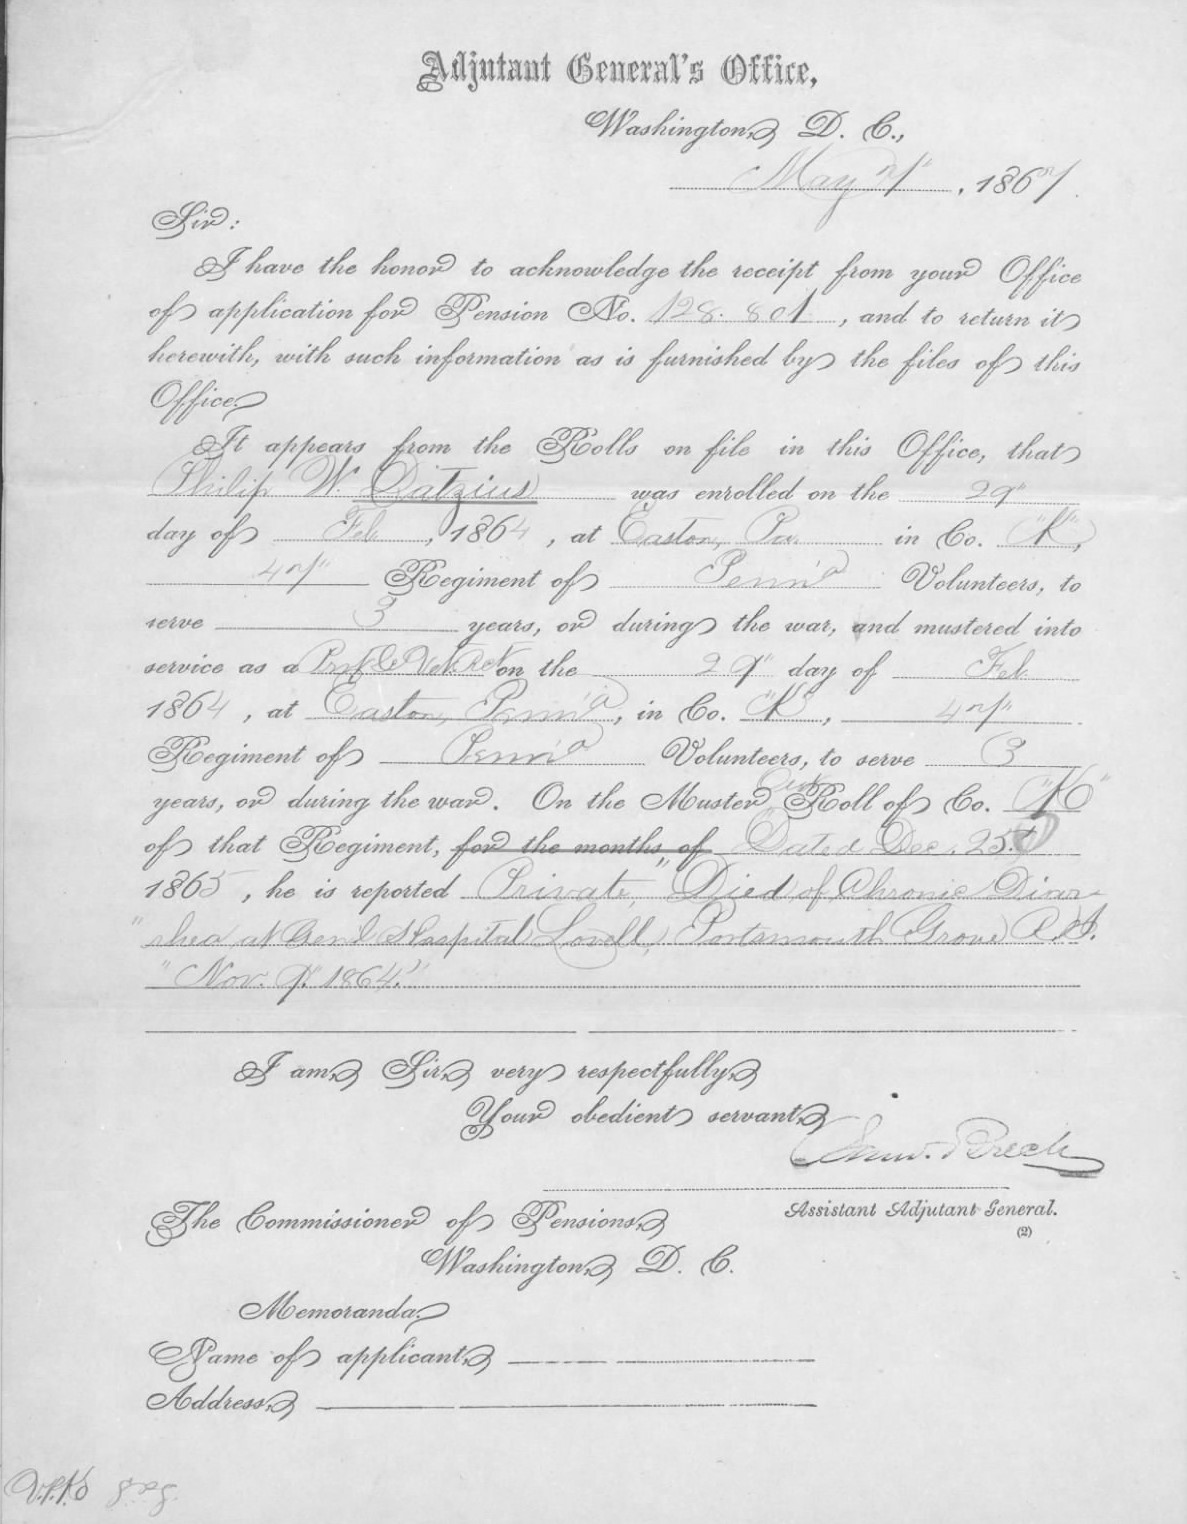 Adjutant General's Office,
Washington, D. C.,
May 7", 1867.
Sir:
I have the honor to acknowledge the receipt from your Office
of application for Pension No. 128.801, and to return it
herewith, with such information as is furnished by the files of this
Office.
It appears from the Rolls on file in this Office, that
Philip W. Datzius was enrolled on the 29"
day of Feb, 1864, at Easton, Pa. in Co. "K",
47" Regiment of Penn'a Volunteers, to
serve 3 years, or during the war, and mustered into
service as a Vet. Rct on the 29" day of Feb.
1864, at Easton, Penn'a, in Co. "K", 47"
Regiment of Penn'a Volunteers, to serve 3
years, or during the war. On the Muster Out Roll of Co. "K"
of that Regiment, for the months of Dated Dec. 25.
1865, he is reported Private, "Died of Chronic Diar-
"rhea at Gen'l Hospital Lovell, Portsmouth Grove R.I.
"Nov. 9" 1864."
I am, Sir, very respectfully,
Your obedient servant,
Sam. Breck
Assistant Adjutant General.
(2)
The Commissioner of Pensions,
Washington, D. C.
Memoranda.
Name of applicant,
Address,